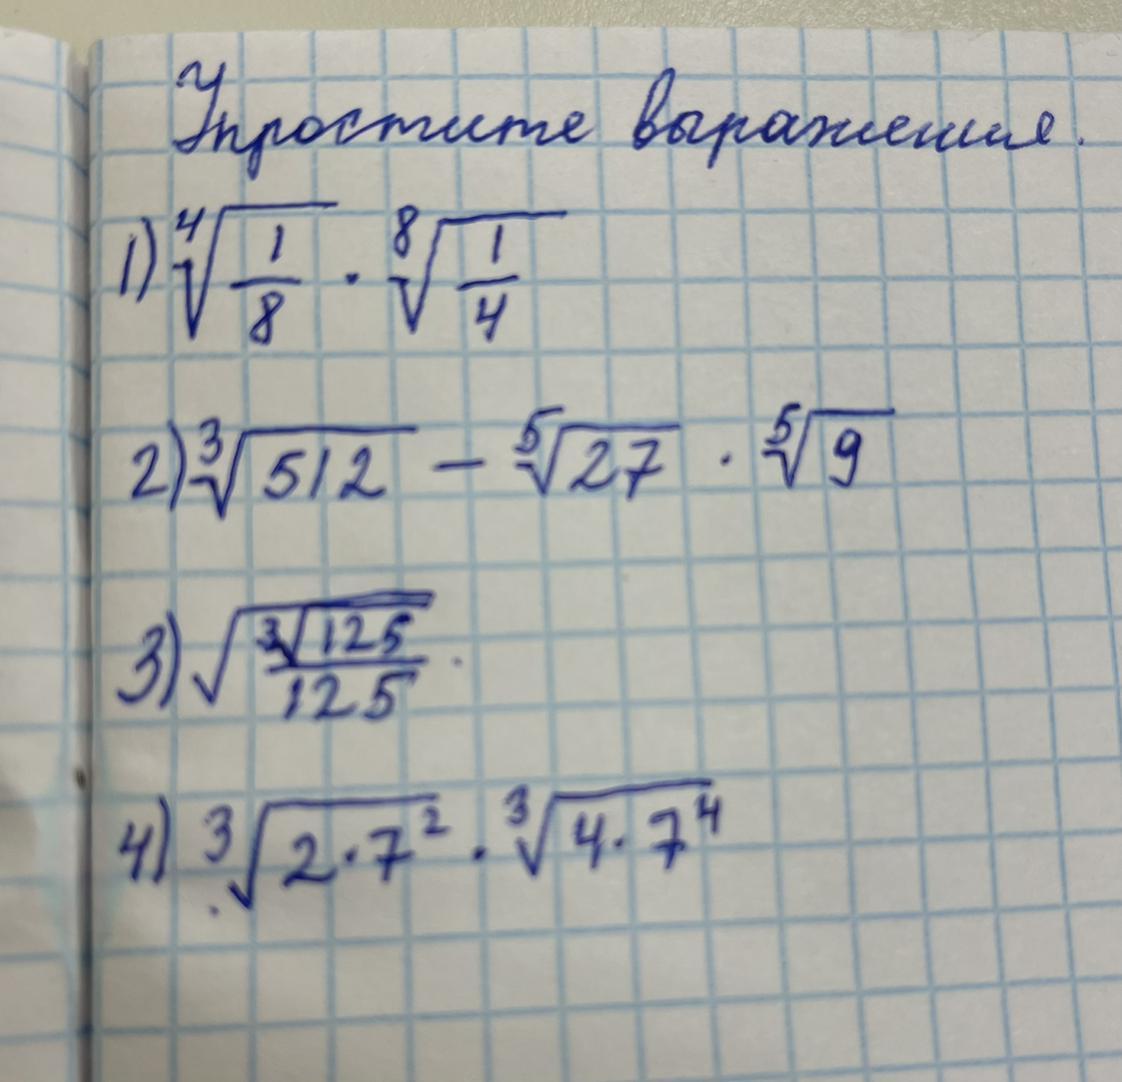 Упростите выражения.
1) ⁴√(1/8) · ⁸√(1/4)
2) ³√512 − ⁵√27 · ⁵√9
3) √(³√125/125)
4) ³√(2·7²) · ³√(4·7⁴)